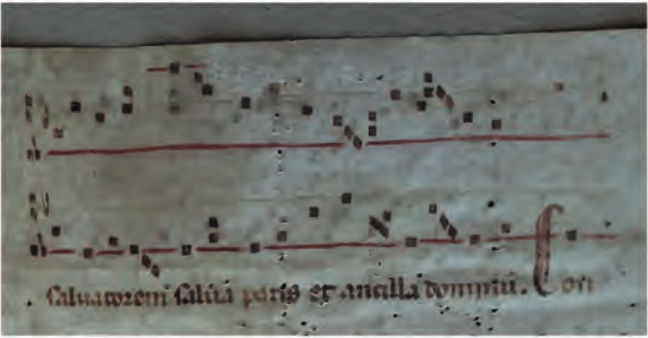 saluatorem salua paris et ancilla dominū. Con